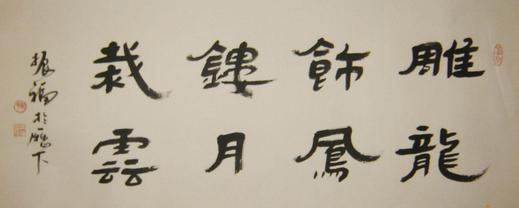 雕龍
飾鳳
鏤月
裁雲
振福於雁下